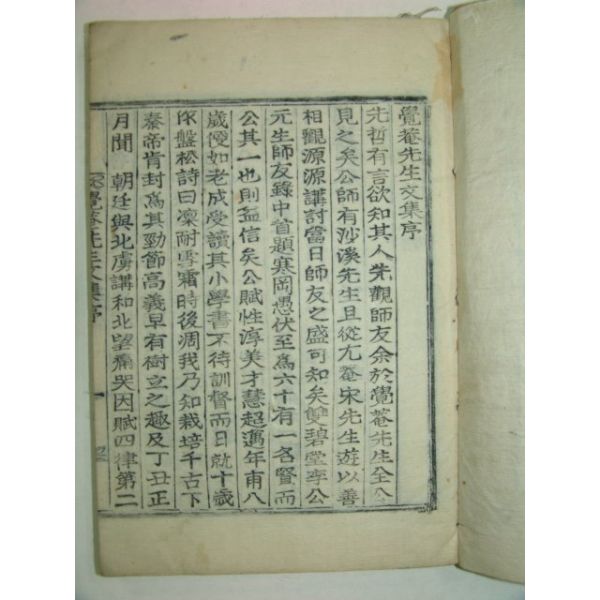 覺菴先生文集序
先哲有言欲知其人先觀師友余於覺菴先生全公
見之矣公師有沙溪先生且從尤菴宋先生遊以善
相觀源源講討當日師友之盛可知矣雙碧堂李公
元生師友錄中首題寒岡愚伏至爲六十有一名賢而
公其一也則益信矣公賦性淳美才慧超邁年甫八
歲優如老成受讀其小學書不待訓督而日就十歲
依盤松詩曰凜耐雪霜時後凋我乃知栽培千古下
秦帝肯封爲其勁節高義早有樹立之趣及丁丑正
月聞 朝廷與北虜講和北望痛哭因賦四律第二
覺菴先生文集序 一